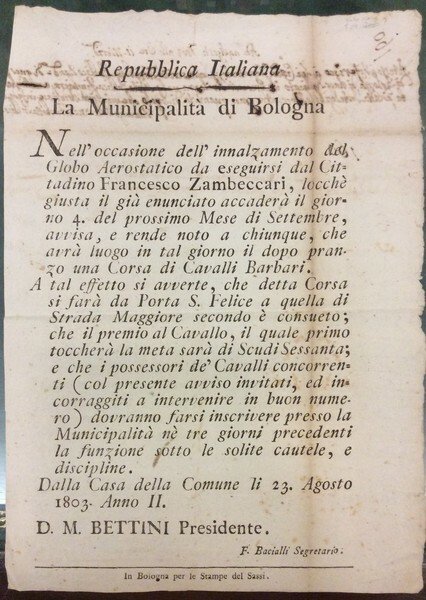 Repubblica Italiana
La Municipalità di Bologna
Nell'occasione dell'innalzamento del
Globo Aerostatico da eseguirsi dal Cit-
tadino Francesco Zambeccari, locchè
giusta il già enunciato accaderà il gior-
no 4. del prossimo Mese di Settembre,
avvisa, e rende noto a chiunque, che
avrà luogo in tal giorno il dopo pran-
zo una Corsa di Cavalli Barbari.
A tal effetto si avverte, che detta Corsa
si farà da Porta S. Felice a quella di
Strada Maggiore secondo è consueto;
che il premio al Cavallo, il quale primo
toccherà la meta sarà di Scudi Sessanta;
e che i possessori de' Cavalli concorren-
ti (col presente avviso invitati, ed in-
corraggiti a intervenire in buon nume-
ro) dovranno farsi inscrivere presso la
Municipalità nè tre giorni precedenti
la funzione sotto le solite cautele, e
discipline.
Dalla Casa della Comune li 23. Agosto
1803. Anno II.
D. M. BETTINI Presidente.
F. Bacialli Segretario.
In Bologna per le Stampe del Sassi.